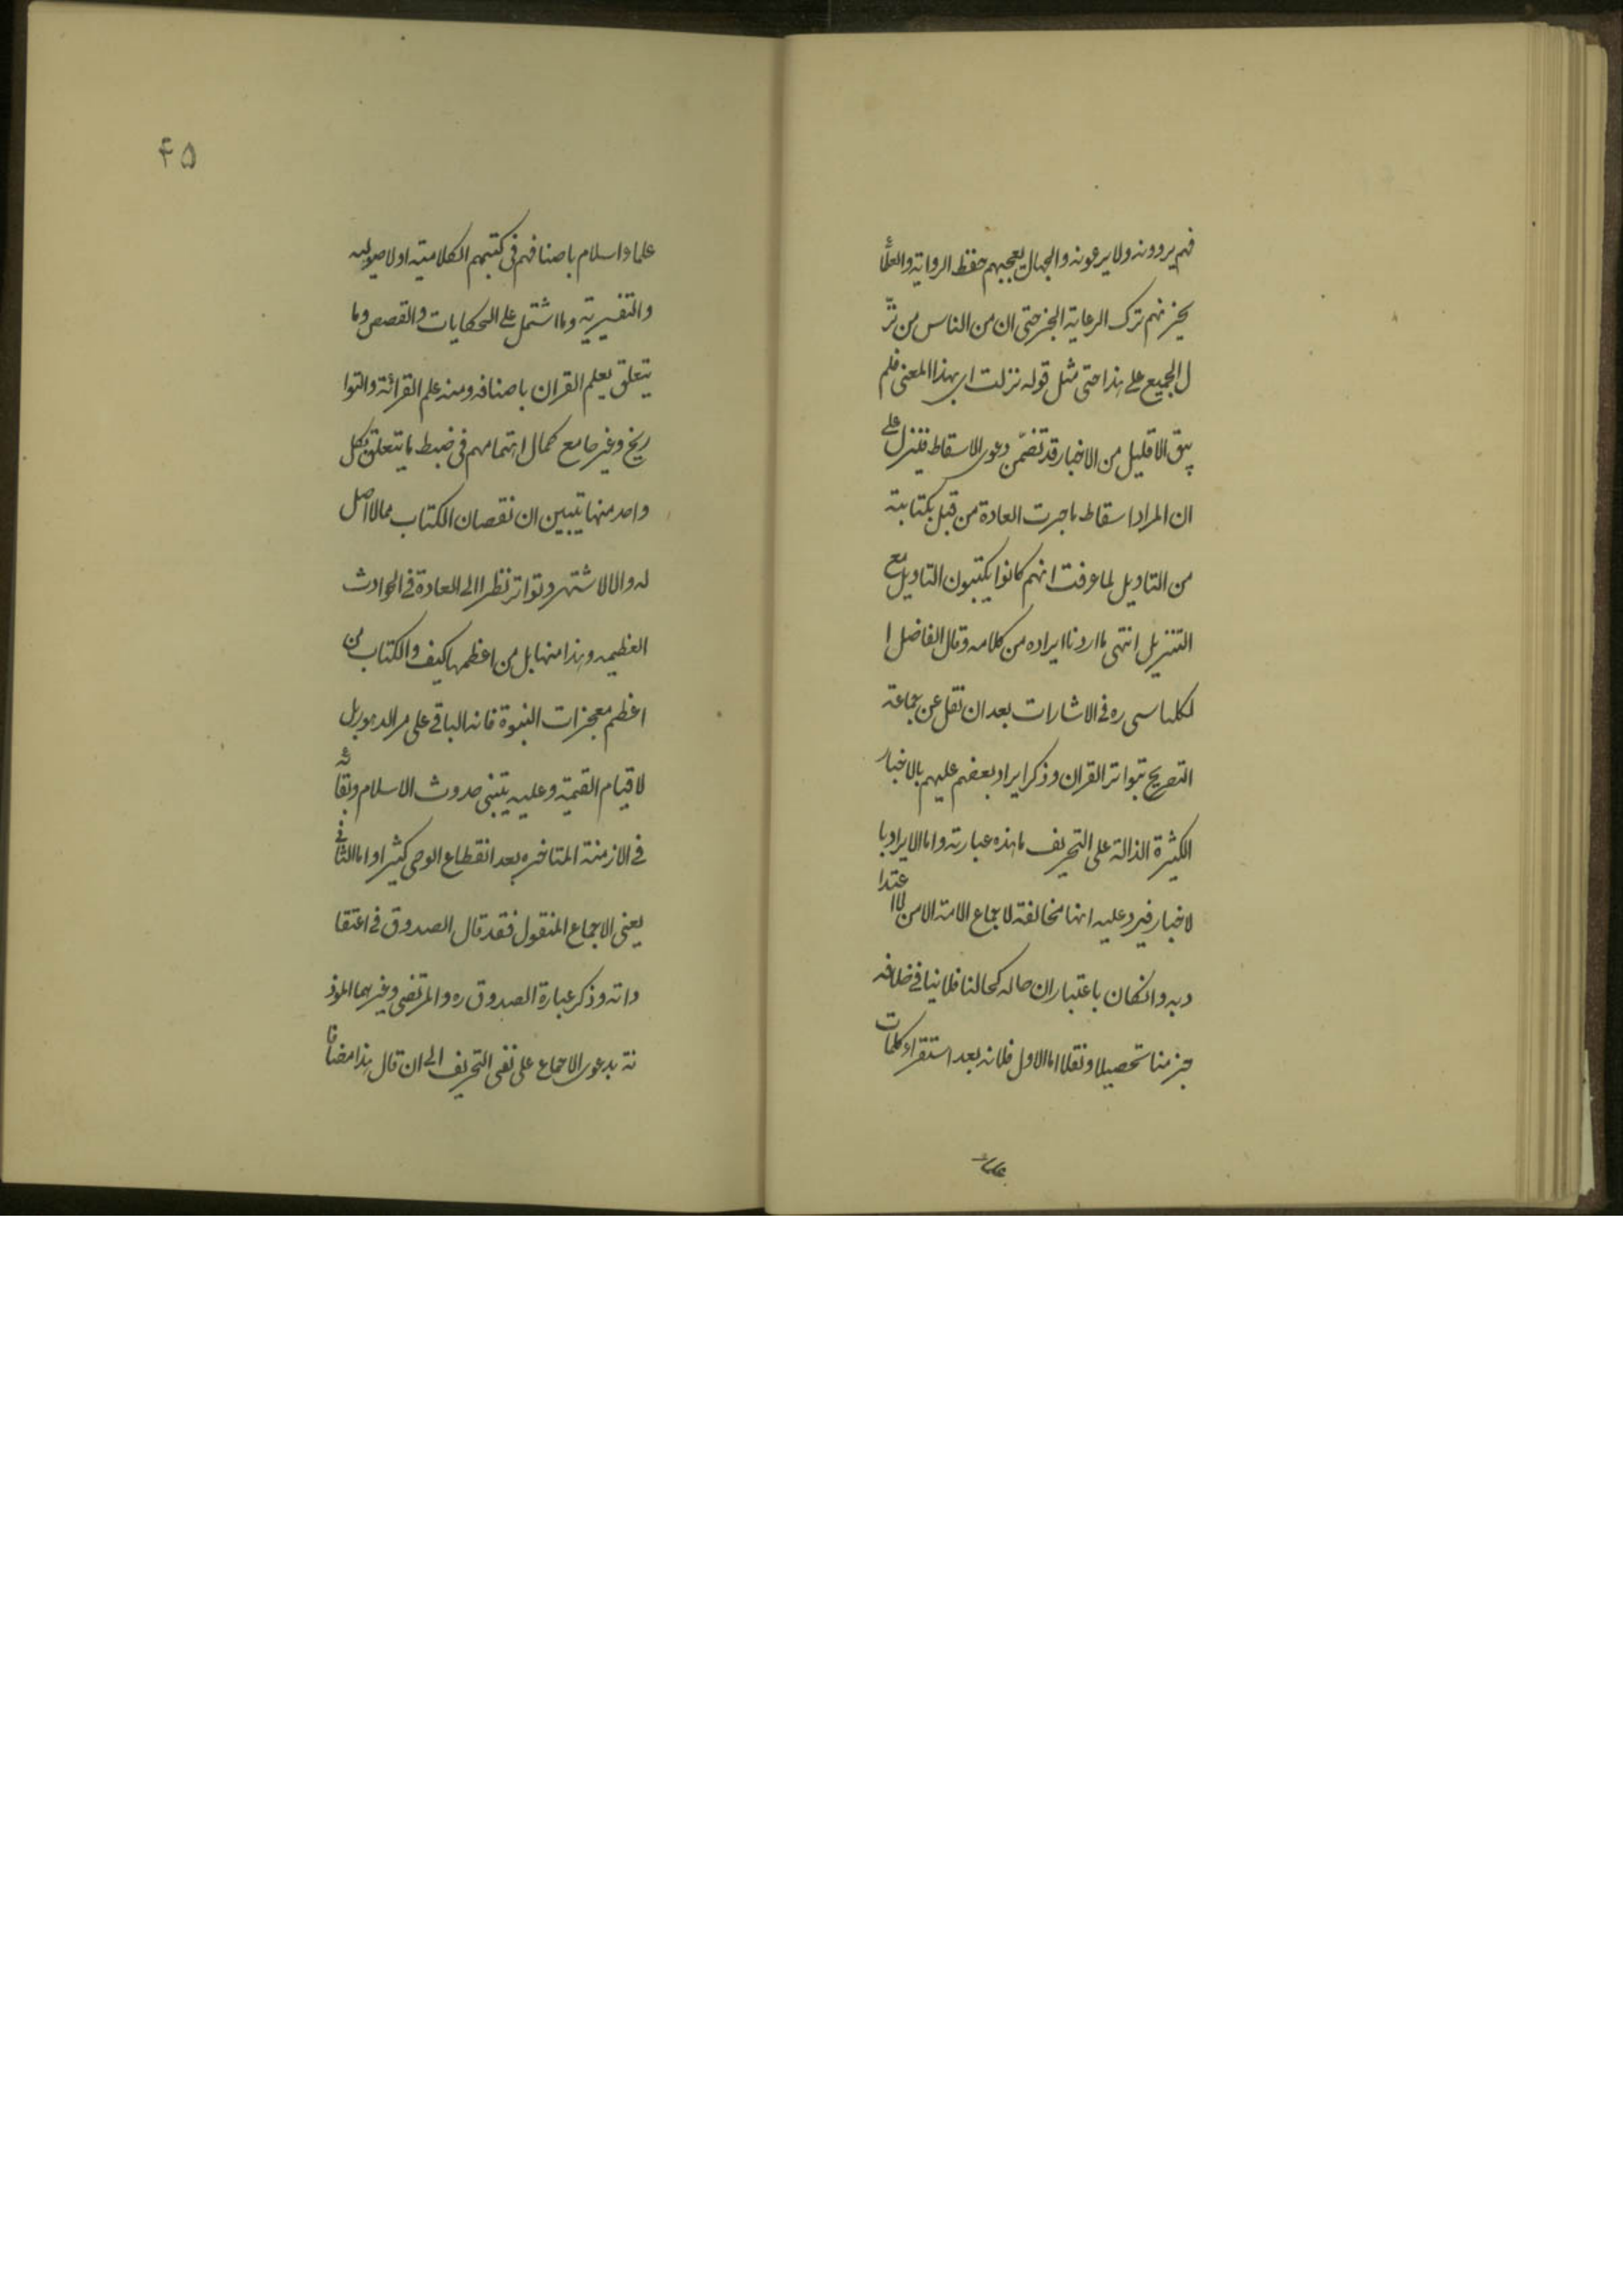 فهم يروونه ولا يرعونه والجهال يعجبهم حفظ الرواية والعلماء
يحزنهم ترك الرعاية الخبر حتى ان من الناس من نز
ل الجميع على هذا حتى مثل قوله نزلت اى بهذا المعنى فلم
يبق الا قليل من الاخبار قد تضمن دعوى الاسقاط فينزل على
ان المراد اسقاط ما جرت العادة من قبل بكتابته
من التاويل لما عرفت انهم كانوا يكتبون التاويل مع
التنزيل انتهى ما اردنا ايراده من كلامه وقال الفاضل ا
لكلباسى ره فى الاشارات بعد ان نقل عن جماعة
التصريح بتواتر القران وذكر ايراد بعضهم عليهم بالاخبار
الكثيرة الدالة على التحريف ما هذه عبارته واما الايراد با
لاخبار فيرد عليه انها مخالفة لاجماع الامة الا من لا اعتدا
د به وانكان باعتبار ان حاله كحالنا فلا ينافى خلافه
جزمنا تحصيلا ونقلا اما الاول فلانه بعد استقراء كلمات
علماء
۴۵
علماء اسلام باصنافهم فى كتبهم الكلامية او لاصوليه
والتفسيرية وما اشتمل على الحكايات والقصص وما
يتعلق بعلم القران باصنافه ومنه علم القرائة والتوا
ريخ وغيرها مع كمال اهتمامهم فى ضبط ما يتعلق بكل
واحد منها تبين ان نقصان الكتاب مما لا اصل
له والا لاشتهر وتواتر نظرا الى العادة فى الحوادث
العظيمه وهذا منها بل من اعظمها كيف والكتاب من
اعظم معجزات النبوة فانه الباقى على مر الدهور بل
لا قيام القيمة وعليه يبتنى حدوث الاسلام وبقائه
فى الازمنة المتاخره بعد انقطاع الوحى كثيرا واما الثانى
يعنى الاجماع المنقول فقد قال الصدوق فى اعتقا
داته وذكر عبارة الصدوق ره والمرتضى وغيرهما الموذ
نة بدعوى الاجماع على نفى التحريف الى ان قال هذا مضافا